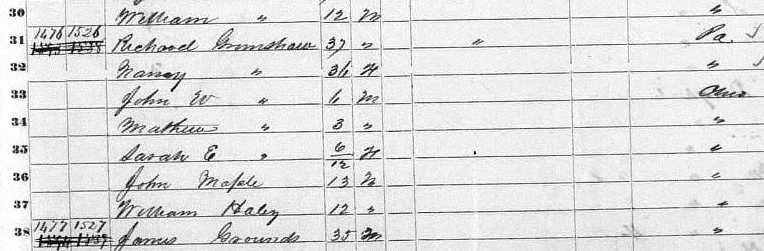 30 William " 12 M "
31 1476 1526 Richard Grimshaw 37 " " Pa.
32 Nancy " 36 F "
33 John W " 6 M Ohio
34 Mathew " 3 " "
35 Sarah E " 6/12 F "
36 John Maple 13 M "
37 William Haley 12 " "
38 1477 1527 James Grounds 35 M "